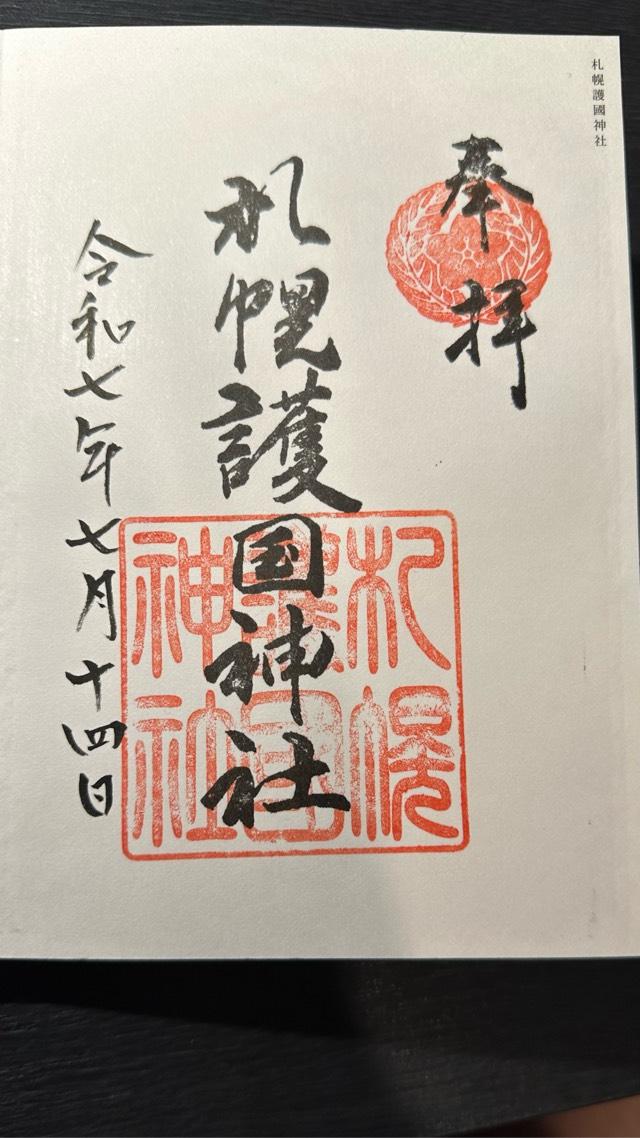 札幌護國神社
奉拝
札幌護国神社
札幌護国神社
令和七年七月十四日